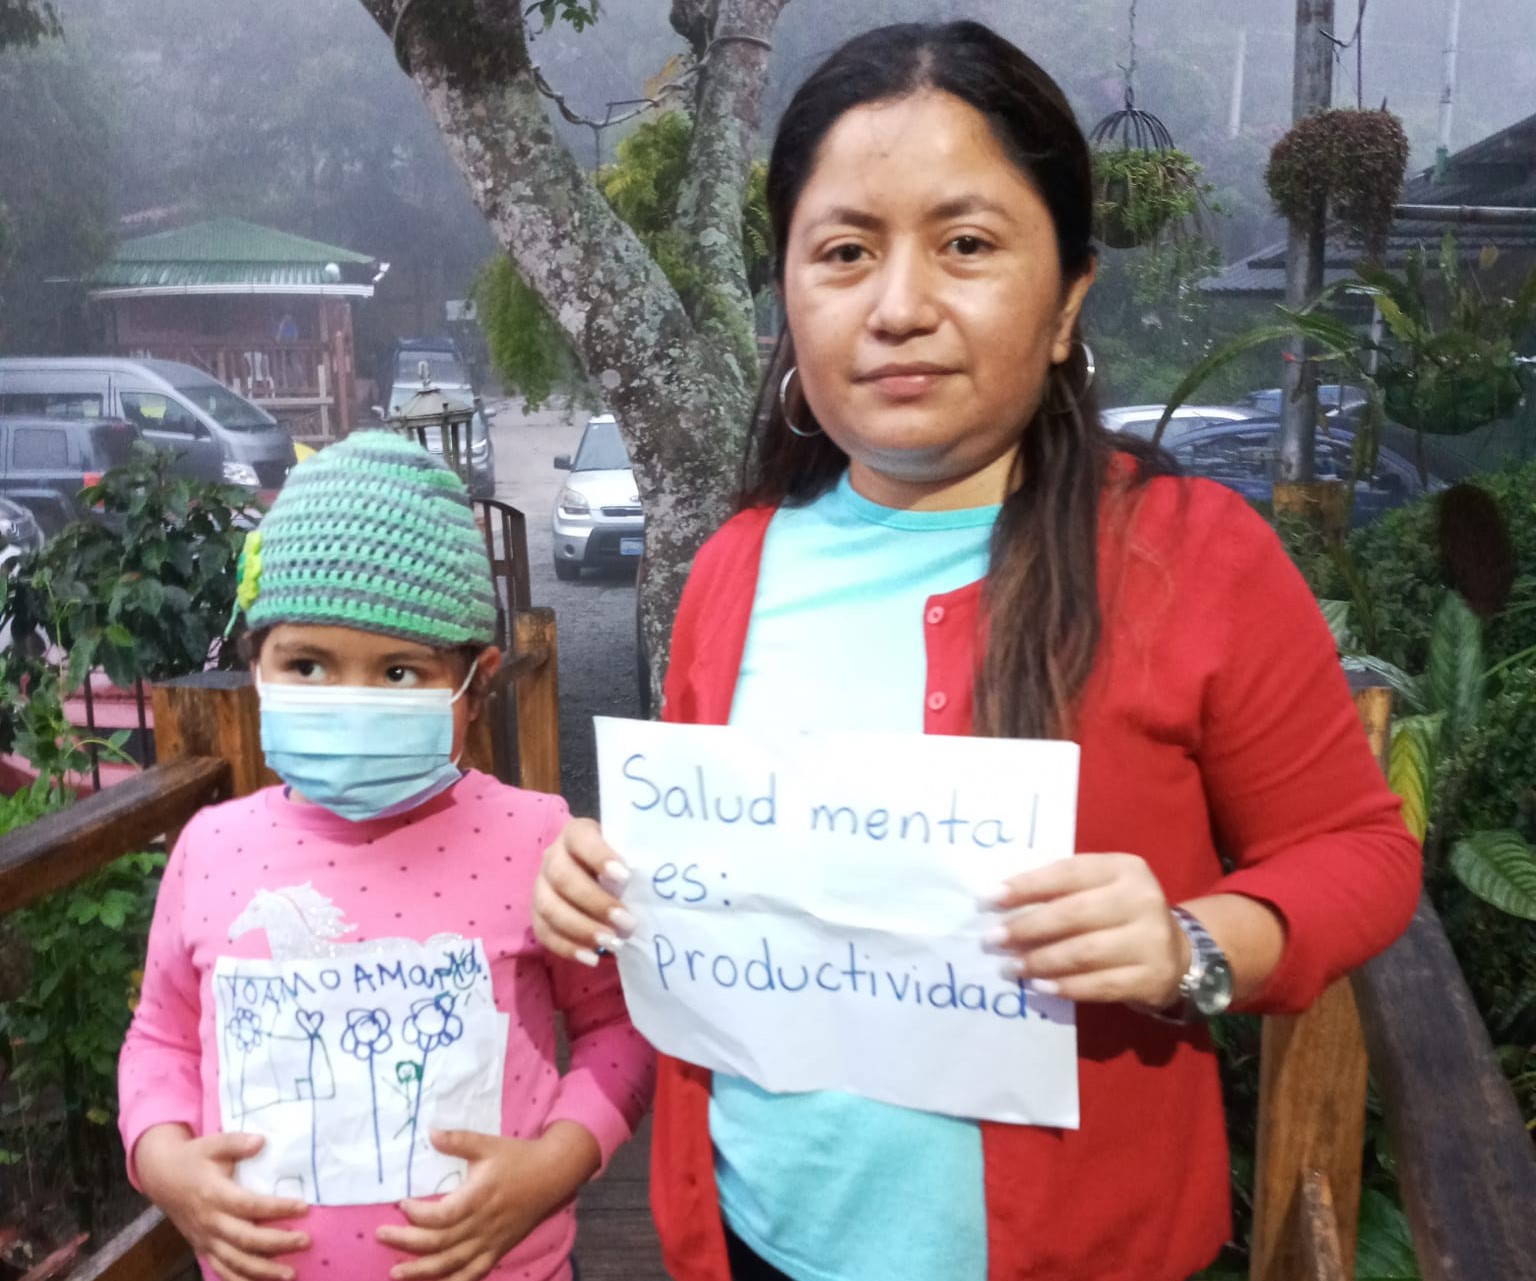 YO AMO A MAMÁ.
Salud mental
es:
productividad.